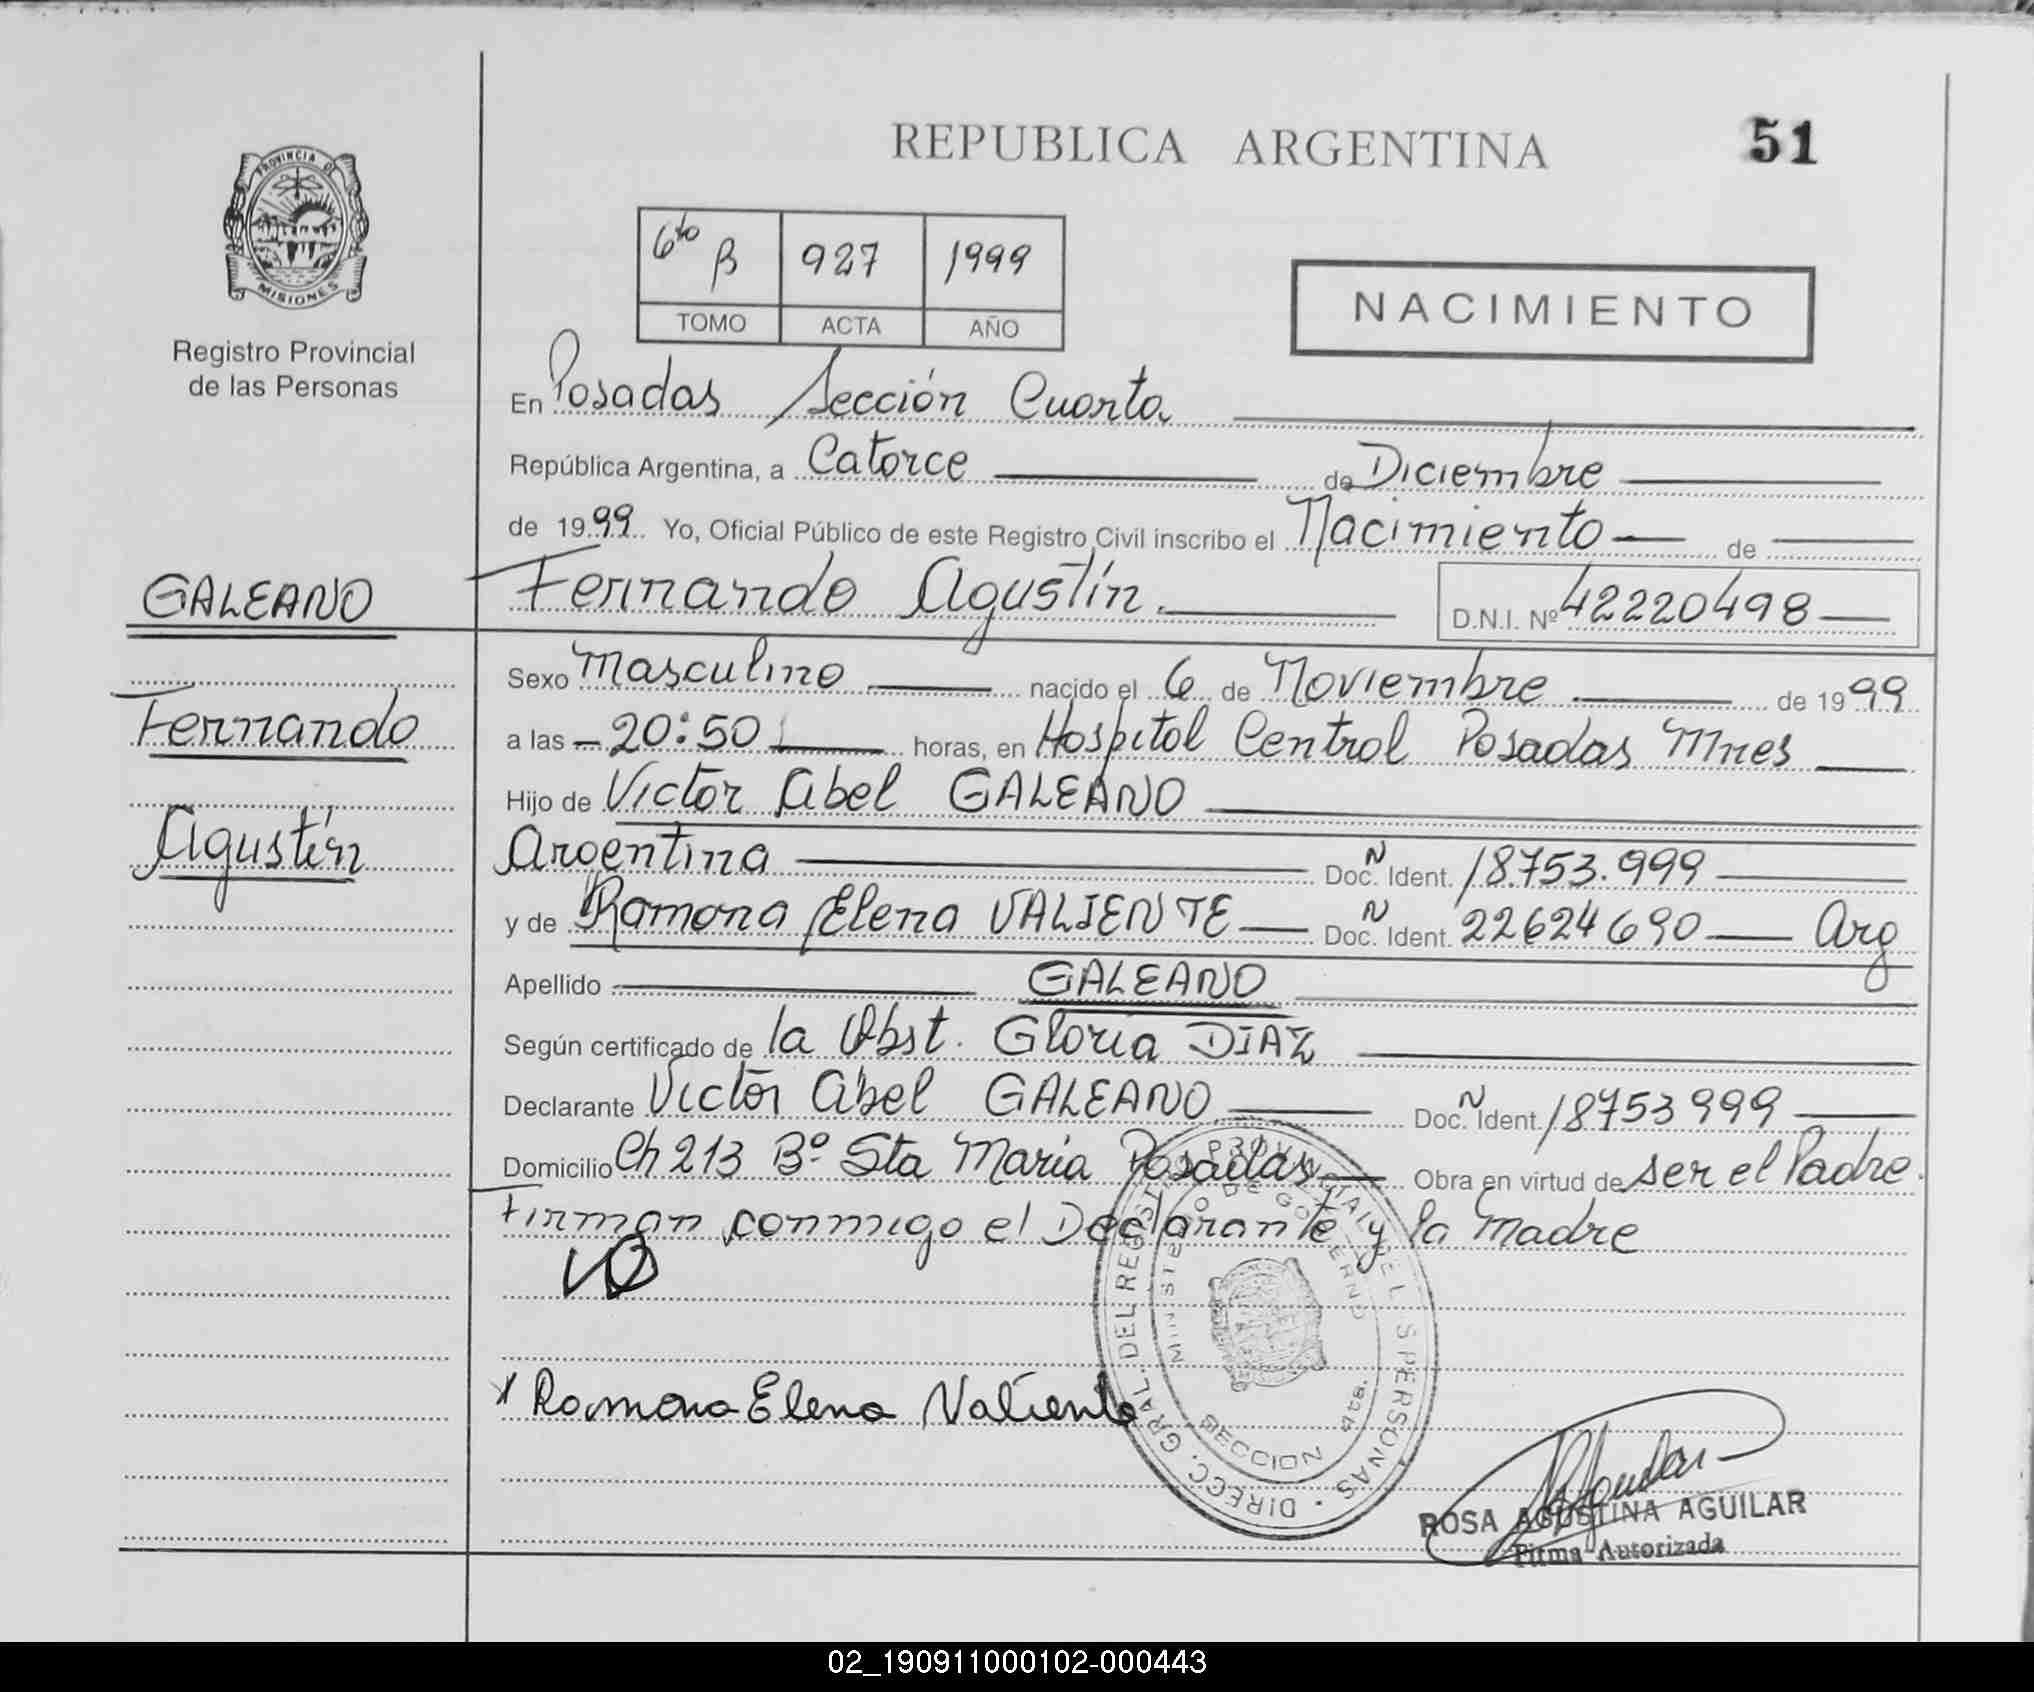 REPUBLICA ARGENTINA
51
PROVINCIA DE
MISIONES
Registro Provincial
de las Personas
6to B 927 1999
TOMO ACTA AÑO
NACIMIENTO
En Posadas Sección Cuarta
República Argentina, a Catorce de Diciembre
de 1999 Yo, Oficial Público de este Registro Civil inscribo el Nacimiento de
GALEANO
Fernando Agustín.
D.N.I. Nº 42220498
Sexo Masculino nacido el 6 de Noviembre de 1999
Fernando
a las 20:50 horas, en Hospital Central Posadas Mnes
Hijo de Victor Abel GALEANO
Agustín
Argentina Doc. N Ident. 18.753.999
y de Ramona Elena VALIENTE Doc. N Ident. 22624690 Arg
Apellido GALEANO
Según certificado de la Obst. Gloria DIAZ
Declarante Victor Abel GALEANO Doc. N Ident. 18753999
Domicilio Ch 213 Bº Sta Maria Posadas Obra en virtud de ser el Padre.
Firman conmigo el Declarante y la Madre
x Ramona Elena Valiente
DIRECC. GRAL. DEL REGISTRO PROVINCIAL DE L S PERSONAS
MINISTERIO DE GOBIERNO
SECCION
ROSA AGUSTINA AGUILAR
Firma Autorizada
02_190911000102-000443